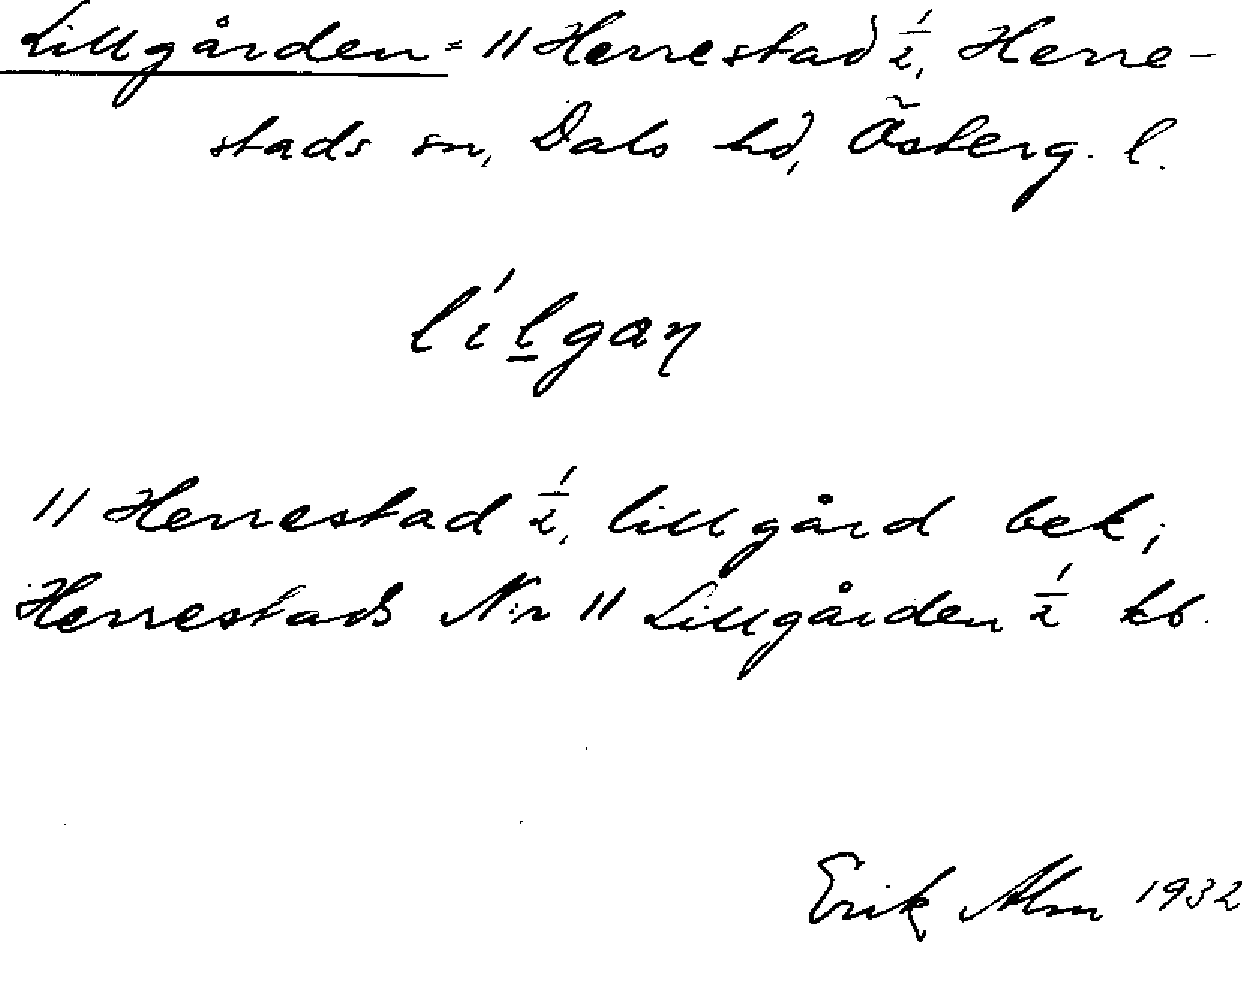 Lillgården = 11 Herrestad 1/2, Herre-
stads sn, Dals hd, Österg. l.
lílgaŋ
11 Herrestad 1/2, lillgård bek;
Herrestads N:r 11 Lillgården 1/2 kb.
Erik Alm 1932